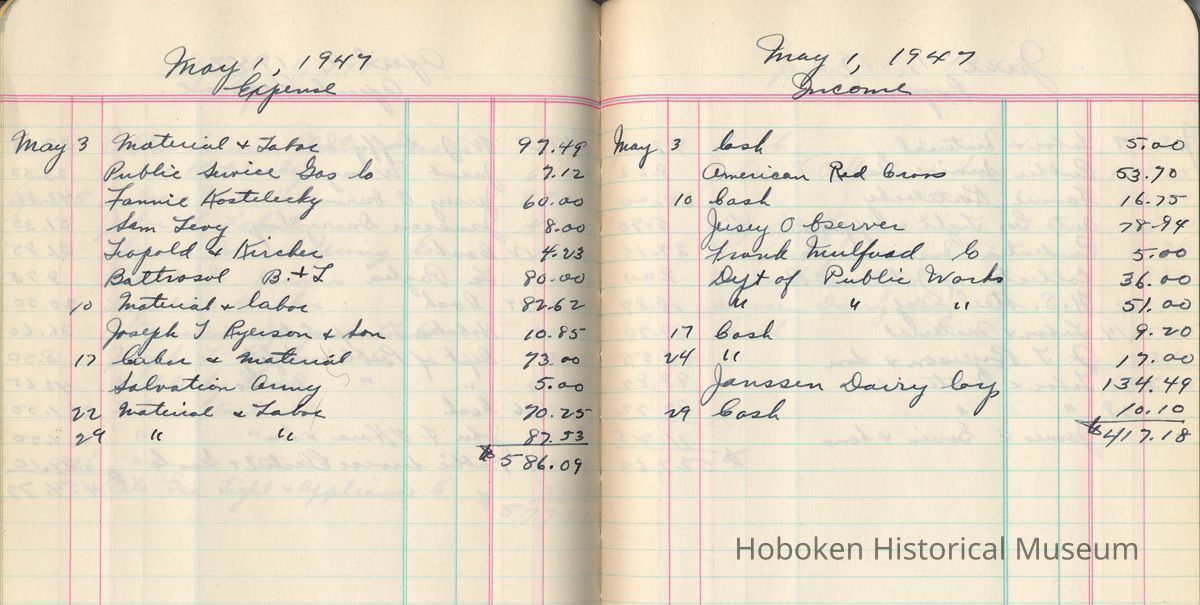 May 1, 1947
Expense
May 3 Material & Labor 97.49
Public Service Gas Co 7.12
Fannie Kostelecky 60.00
Sam Levy 8.00
Leopold & Kircher 4.23
Battrosol B. & L 80.00
10 Material & labor 82.62
Joseph T Ryerson & Son 10.85
17 Labor & Material 73.00
Salvation Army 5.00
22 Material & Labor 70.25
29 " " 87.53
$586.09
May 1, 1947
Income
May 3 Cash 5.00
American Red Cross 53.70
10 Cash 16.75
Jersey Observer 78.94
Frank Mulfoad Co 5.00
Dept of Public Works 36.00
" " " 51.00
17 Cash 9.20
24 " 17.00
Janssen Dairy Corp 134.49
29 Cash 10.10
$417.18
Hoboken Historical Museum